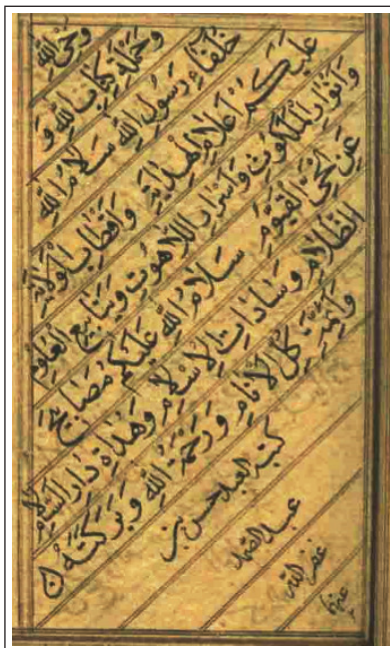 وحی الله
وحملة كتاب الله و
خلفاء رسول الله سلام الله
عليكم اعلام الهداية واقطاب الولاية
وانوار الملكوت واسرار اللاهوت وينابيع العلوم
عن الحی القيوم سلام الله عليكم مصابيح
الظلام وسادات الاسلام وهداة دار السلام
وائمة كل الانام ورحمة الله وبركته
كتبه العبد حسن بن
عبد الصمد
غفر الله
عنهما